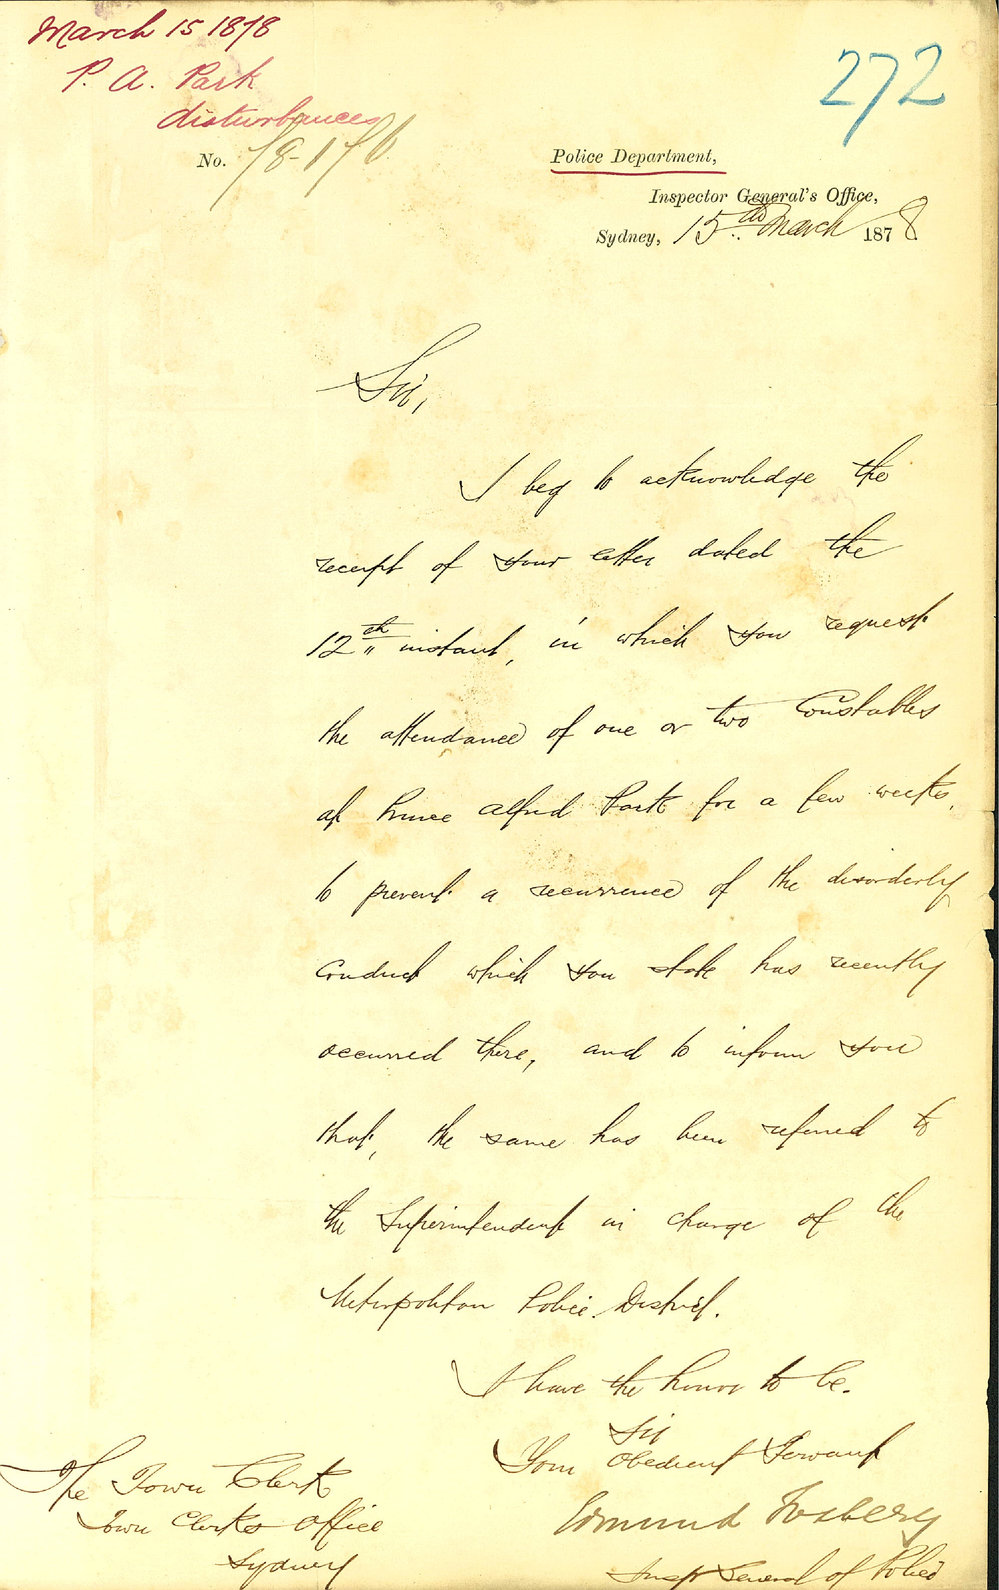 March 15 1878
P. A. Park
disturbances
272
No. 78-176
Police Department,
Inspector General's Office,
Sydney, 15th March 1878
Sir,
I beg to acknowledge the
receipt of your letter dated the
12th instant, in which you request
the attendance of one or two Constables
at Prince Alfred Park for a few weeks,
to prevent a recurrence of the disorderly
conduct which you state has recently
occurred there, and to inform you
that, the same has been referred to
the Superintendent in charge of the
Metropolitan Police District.
I have the honor to be.
Sir
Your Obedient Servant
Edmund Fosbery
Inspr General of Police
The Town Clerk
Town Clerks Office
Sydney